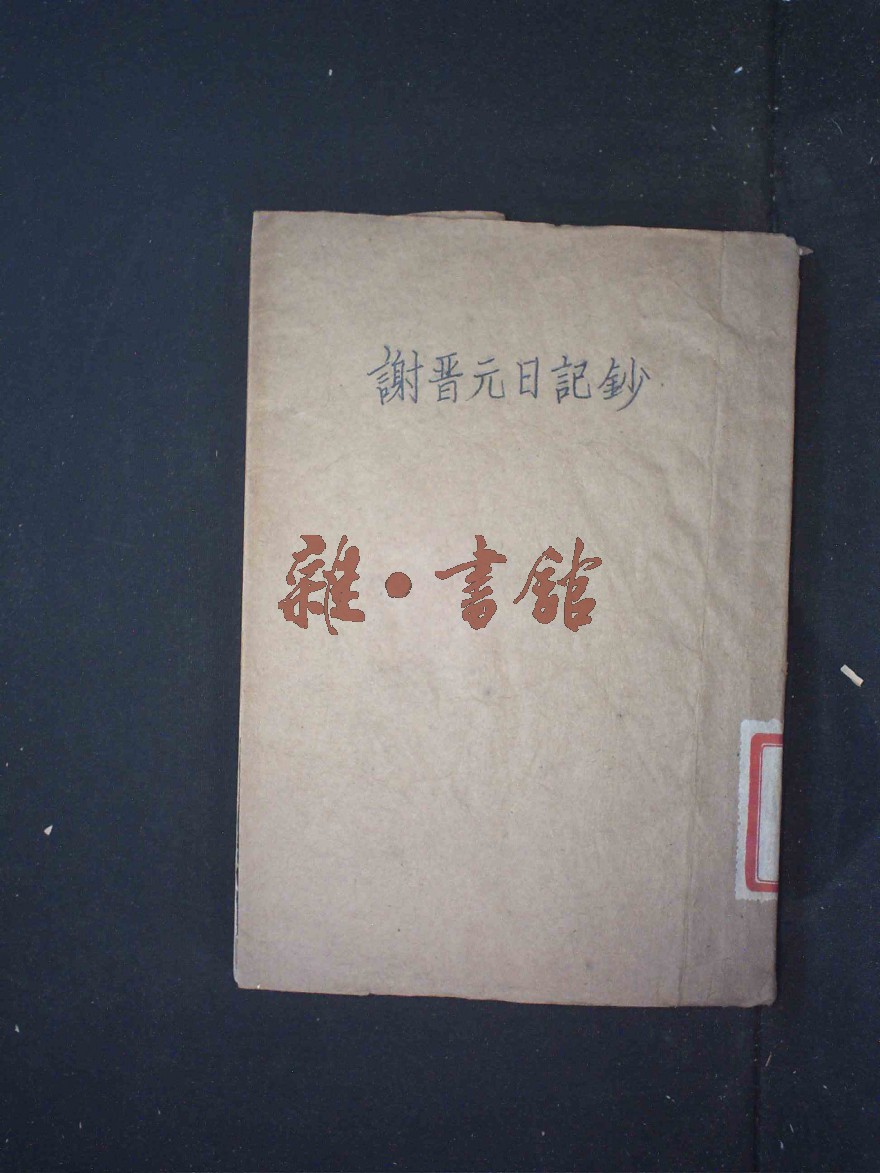 謝晋元日記鈔
雜·書館